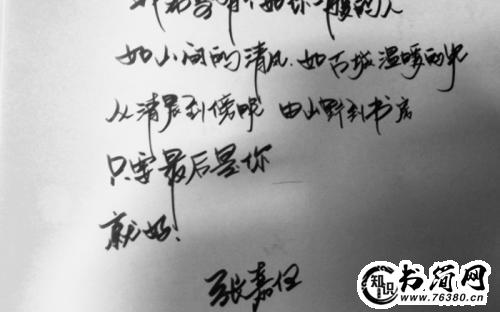 如山间的清风.如古城温暖的光
从清晨到傍晚 由山野到书店
只要最后是你
就好!
张嘉任
知识
书简网
www.76380.cn